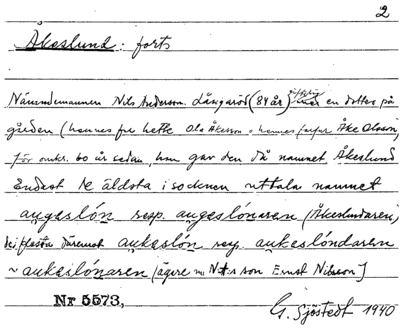 2
Åkeslund: forts
Nämndemannen Nils Andersson Långaröd (84 år) gift med en dotter på
gården (hennes far hette Ola Åkesson o hennes farfar Åke Olsson)
för omkr. 60 år sedan, han gav den då namnet Åkeslund
Endast de äldsta i socknen uttala namnet
augaslón resp. augeslónaren (Åkeslundaren)
de flesta däremot aukaslón resp. aukeslóndaren
~ aukaslónaren (ägare nu N A:s son Ernst Nilsson)
Nr 5573,
G. Sjöstedt 1940